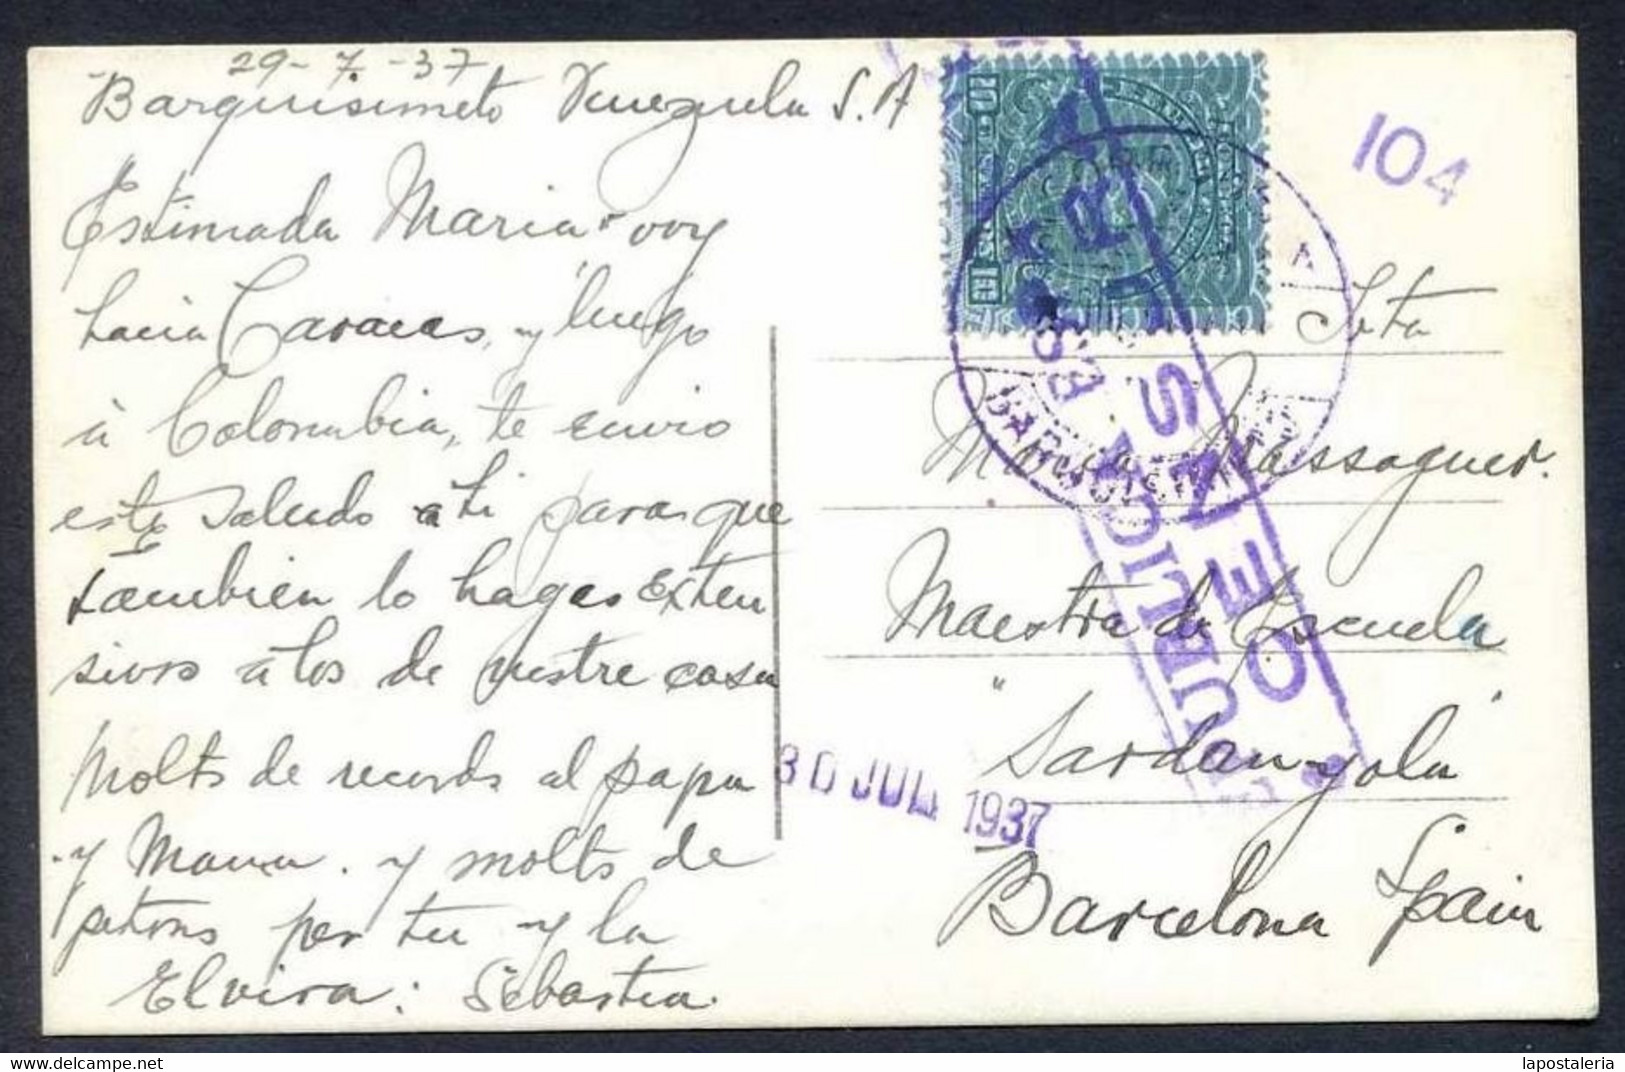 29-7-37
Barquisimeto Venezuela S.A
Estimada Maria voy
hacia Caracas, y luego
à Colombia, te envio
este saludo a ti para que
tambien lo hagas exten
sivos à los de vostre casa
Molts de records al papa
y Mama. y molts de
petons per tu y la
Elvira: Sebastia.
104
Srta
Maria Massaguer.
Maestra de Escuela
"Sardanyola"
Barcelona Spain
30 JUL 1937
BARQUISIMETO
REPUBLICA
CENSURA
lapostaleria